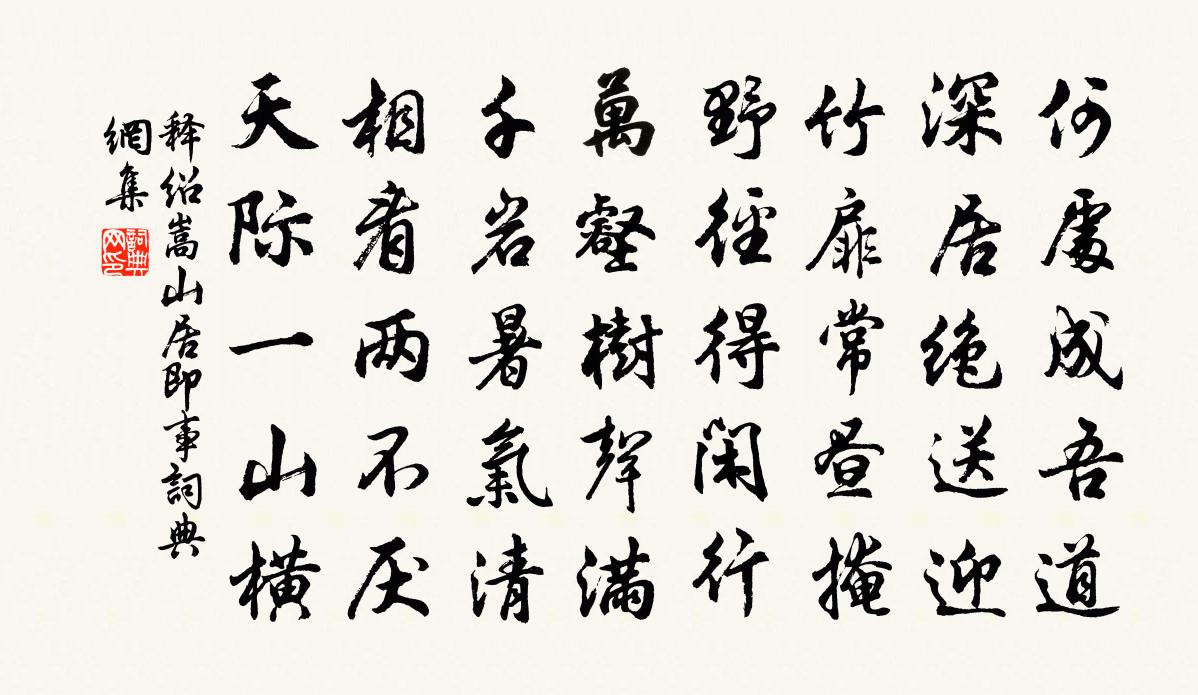 何處成吾道
深居绝送迎
竹扉常昼掩
野徑得闲行
萬壑樹聲滿
千岩暑氣清
相看两不厌
天际一山横
释绍嵩山居即事詞典
網集
詞典
网印